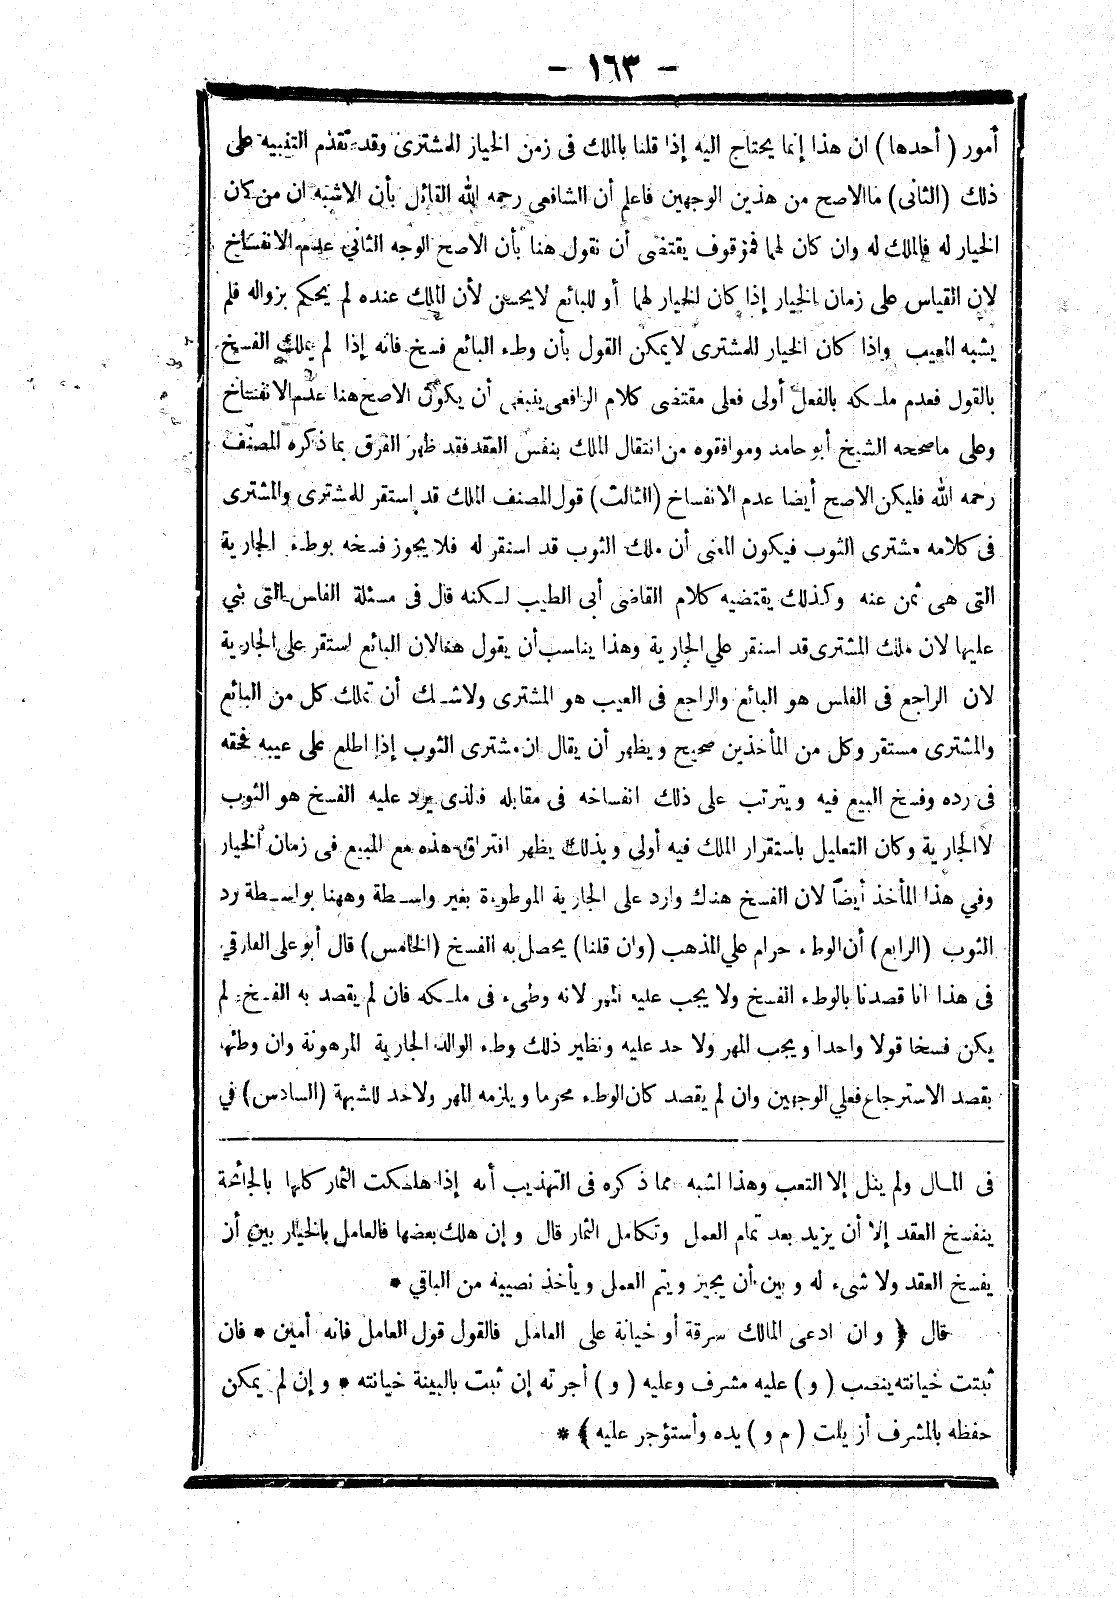 - ١٦٣ -
أمور ( أحدها ) ان هذا إنما يحتاج اليه إذا قلنا بالملك فى زمن الخيار للمشترى وقد تقدم التنبيه على
ذلك (الثانى) ما الاصح من هذين الوجهين فاعلم أن الشافعى رحمه الله القائل بأن الاشبه ان من كان
الخيار له فالملك له وان كان لهما فموقوف يقتضى أن نقول هنا بأن الاصح الوجه الثاني عدم الانفساخ
لان القياس على زمان الخيار إذا كان الخيار لهما أو للبائع لايحسن لأن الملك عنده لم يحكم بزواله فلم
يشبه المعيب واذا كان الخيار للمشترى لايمكن القول بأن وطء البائع فسخ فانه إذا لم يملك الفسخ
بالقول فعدم ملكه بالفعل أولى فعلى مقتضى كلام الرافعى ينبغى أن يكون الاصح هنا عدم الانفساخ
وعلى ماصححه الشيخ أبو حامد وموافقوه من انتقال الملك بنفس العقد فقد ظهر الفرق بما ذكره المصنف
رحمه الله فليكن الاصح أيضا عدم الانفساخ (الثالث) قول المصنف الملك قد استقر للمشترى والمشترى
فى كلامه مشترى الثوب فيكون المعنى أن ملك الثوب قد استقر له فلا يجوز فسخه بوطء الجارية
التى هى ثمن عنه وكذلك يقتضيه كلام القاضى أبى الطيب لكنه قال فى مسئلة الفلس التى نبي
عليها لان ملك المشترى قد استقر علي الجارية وهذا يناسب أن يقول هنا لان البائع استقر على الجارية
لان الراجع فى الفلس هو البائع والراجع فى العيب هو المشترى ولاشك أن تملك كل من البائع
والمشترى مستقر وكل من المأخذين صحيح ويظهر أن يقال ان مشترى الثوب إذا اطلع على عيبه فحقه
فى رده وفسخ البيع فيه ويترتب على ذلك انفساخه فى مقابله فالذى يرد عليه الفسخ هو الثوب
لا الجارية وكان التعليل باستقرار الملك فيه أولى وبذلك يظهر افتراق هذه مع المبيع فى زمان الخيار
وفي هذا المأخذ أيضاً لان الفسخ هناك وارد على الجارية الموطوءة بغير واسطة وههنا بواسطة رد
الثوب (الرابع) أن الوطء حرام علي المذهب (وان قلنا) يحصل به الفسخ (الخامس) قال أبو على الفارقي
فى هذا انا قصدنا بالوطء الفسخ ولا يجب عليه المهر لانه وطىء فى ملكه فان لم يقصد به الفسخ لم
يكن فسخا قولا واحدا ويجب المهر ولا حد عليه ونظير ذلك وطء الوالد الجارية المرهونة وان وطئها
بقصد الاسترجاع فعلي الوجهين وان لم يقصد كان الوطء محرما ويلزمه المهر ولاحد للشبهة (السادس) في
فى المال ولم ينل إلا التعب وهذا اشبه مما ذكره فى التهذيب أنه إذا هلكت الثمار كلها بالجائحة
ينفسخ العقد إلا أن يزيد بعد تمام العمل وتكامل الثمار قال وإن هلك بعضها فالعامل بالخيار بين أن
يفسخ العقد ولا شىء له وبين أن يجيز ويتم العمل ويأخذ نصيبه من الباقي *
قال ﴿ وان ادعى المالك سرقة أو خيانة على العامل فالقول قول العامل فانه أمين * فان
ثبتت خيانته ينصب ( و ) عليه مشرف وعليه ( و ) أجرته إن ثبت بالبينة خيانته * وإن لم يمكن
حفظه بالمشرف أزيلت ( م و ) يده وأستؤجر عليه ﴾ *